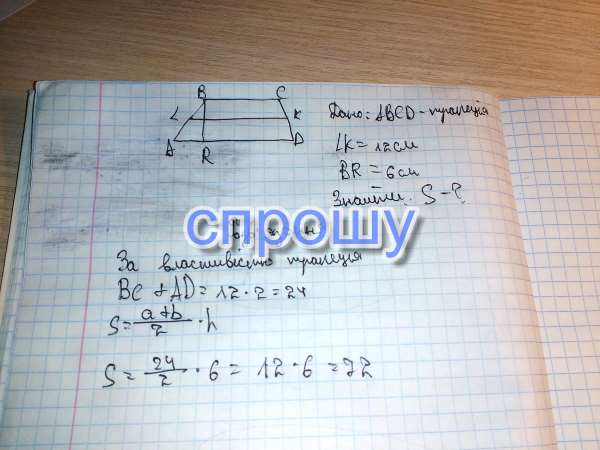 B C
L K
A R D
Дано: ABCD - трапеція
LK = 12 см
BR = 6 см
Знайти: S - ?
спрошу
За властивістю трапеція
BC + AD = 12 · 2 = 24
S = a+b/2 · h
S = 24/2 · 6 = 12 · 6 = 72